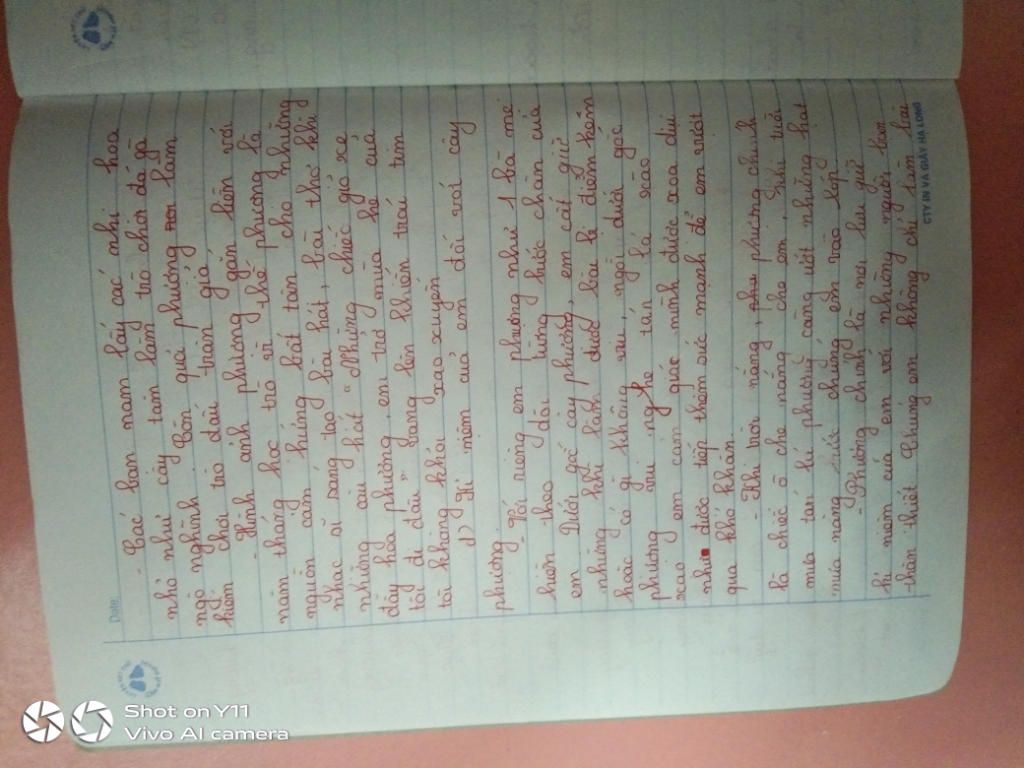 Date:
- Các bạn nam lấy các nhị hoa
nhỏ như cây tăm làm trò chơi đá gà
ngộ nghĩnh. Còn quả phượng làm
kiếm chơi trò đấu trận giả.
- Hình ảnh phượng gắn liền với
năm tháng học trò vì thế phượng là
nguồn cảm hứng bất tận cho những
nhạc sĩ sáng tạo bài hát, bài thơ khi
những câu hát "Những chiếc giỏ xe
đầy hoa phượng, em trở mùa hè của
tôi đi đâu" vang lên khiến trái tim
tôi không khỏi xao xuyến
d) Kỉ niệm của em đối với cây
phượng
- Với riêng em phượng như 1 bà mẹ
hiền theo dõi từng bước chân của
em. Dưới gốc cây phượng, em cất giữ
những khi làm được bài bị điểm kém
hoặc có gì không vui, ngồi dưới gốc
phượng vui nghe tán lá xào
xạc em cảm giác mình được xoa dịu
như được tiếp thêm sức mạnh để em vượt
qua khó khăn.
- Khi trời nắng, phượng chính
là chiếc ô che nắng che em, Khi trời
mưa tán lá phượng căng ướt những hạt
mưa nâng bước chúng em vào lớp
- Phượng chính là nơi lưu giữ
kỉ niệm của em với những người bạn
thân thiết. Chúng em không chỉ làm bài
CTY IN VÀ GIẤY HẠ LONG
Shot on Y11
Vivo AI camera